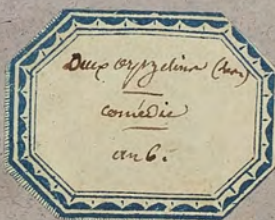 Deux orphelins (les)
comédie
an 6.